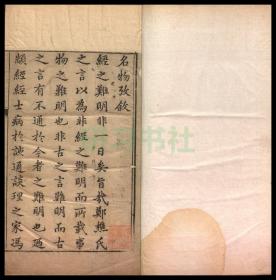 名物攷敘
經之難明非一日矣旨哉鄭樵氏
之言以為非經之難明而所載事
物之難明也非古之言難明而古
之言有不通於今者之難明也迺
顓經經士病於該通談理之家馮